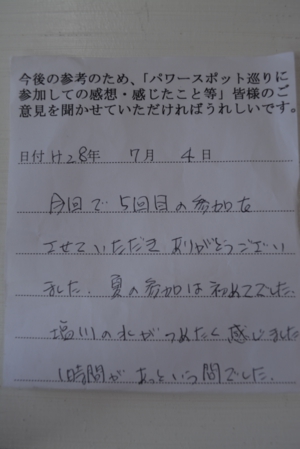 今後の参考のため、「パワースポット巡りに
参加しての感想・感じたこと等」皆様のご
意見を聞かせていただければうれしいです。
日付 H28年 7月 4日
今回で5回目の参加を
させていただき ありがとうござい
ました. 夏の参加は初めてでした.
塩川の水がつめたく感じました
1時間が あっという間でした.